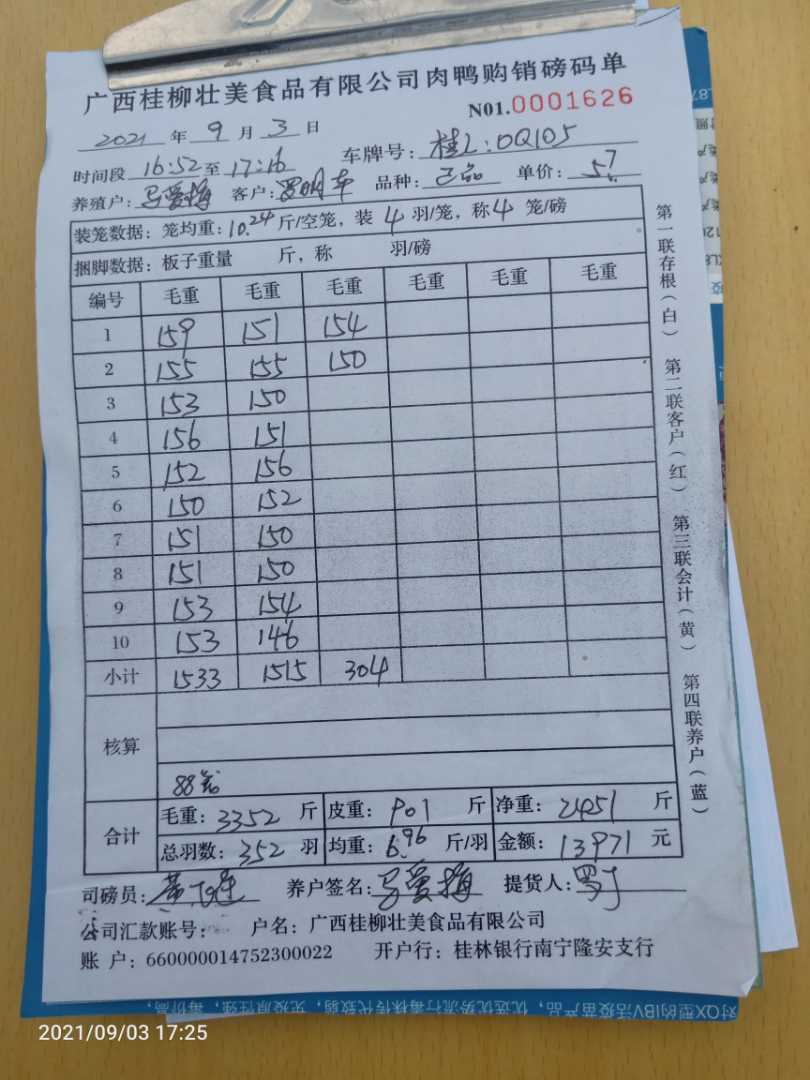 广西桂柳壮美食品有限公司肉鸭购销磅码单
N01.0001626
2021 年 9 月 3 日
时间段 16:52 至 17:16 车牌号: 桂L:0Q105
养殖户: 马爱梅 客户: 罗明车 品种: 正品 单价: 5.7
装笼数据: 笼均重: 10.24 斤/空笼, 装 4 羽/笼, 称 4 笼/磅
捆脚数据: 板子重量 斤, 称 羽/磅
编号 毛重 毛重 毛重 毛重 毛重 毛重
1 159 151 154
2 155 155 150
3 153 150
4 156 151
5 152 156
6 150 152
7 151 150
8 151 150
9 153 154
10 153 146
小计 1533 1515 304
核算
88笼
合计 毛重: 3352 斤 皮重: 901 斤 净重: 2451 斤
总羽数: 352 羽 均重: 6.96 斤/羽 金额: 13971 元
司磅员: 养户签名: 马爱梅 提货人:
公司汇款账号: 户名: 广西桂柳壮美食品有限公司
账 户: 660000014752300022 开户行: 桂林银行南宁隆安支行
第一联存根(白) 第二联客户(红) 第三联会计(黄) 第四联养户(蓝)
2021/09/03 17:25